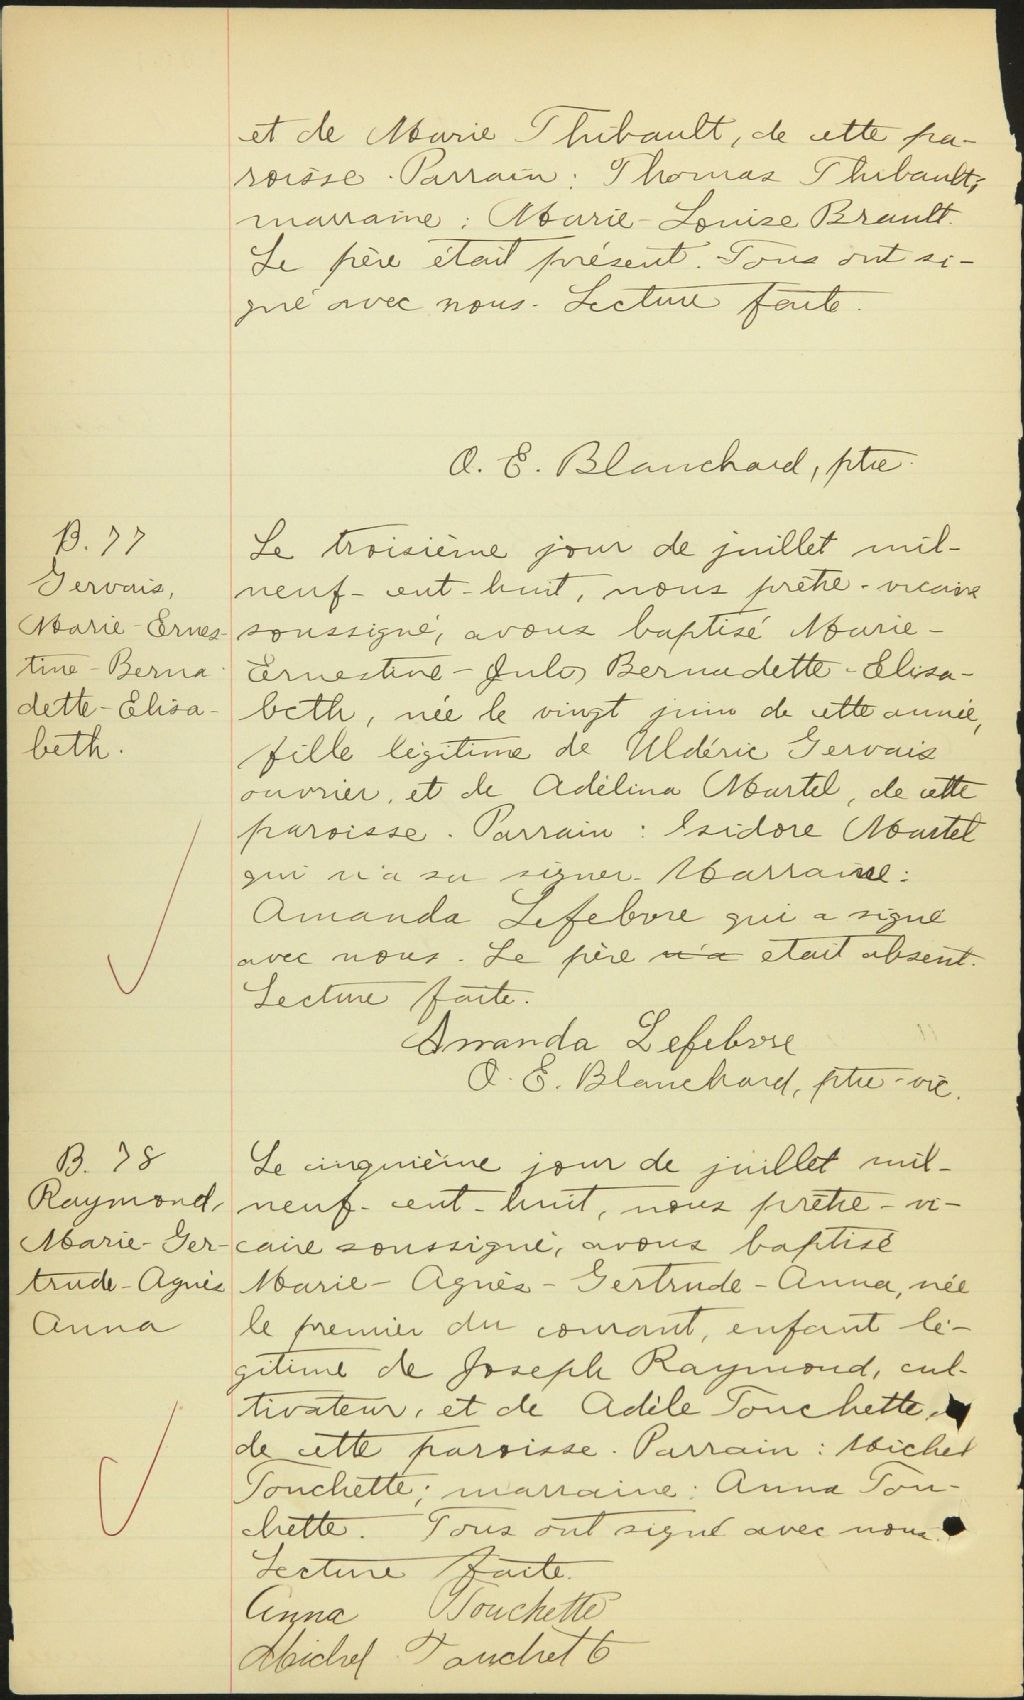 et de Marie Thibault, de cette pa-
roisse. Parrain: Thomas Thibault;
marraine: Marie-Louise Brault.
Le père était présent. Tous ont si-
gné avec nous. Lecture faite.
O. E. Blanchard, ptre.
B. 77
Gervais,
Marie-Ernes-
tine-Berna-
dette-Elisa-
beth.
Le troisième jour de juillet mil-
neuf-cent-huit, nous prêtre-vicaire
soussigné, avons baptisé Marie-
Ernestine- Bernadette-Elisa-
beth, née le vingt juin de cette année,
fille légitime de Uldéric Gervais
ouvrier, et de Adélina Martel, de cette
paroisse. Parrain: Isidore Martel
qui n'a su signer. Marraine:
Amanda Lefebvre qui a signé
avec nous. Le père n'a etait absent.
Lecture faite.
Amanda Lefebvre
O. E. Blanchard, ptre-vic.
B. 78
Raymond,
Marie-Ger-
trude-Agnès
Anna
Le cinquième jour de juillet mil-
neuf-cent-huit, nous prêtre-vi-
caire soussigné, avons baptisé
Marie-Agnès-Gertrude-Anna, née
le premier du courant, enfant lé-
gitime de Joseph Raymond, cul-
tivateur, et de Adèle Touchette,
de cette paroisse. Parrain: Michel
Touchette; marraine: Anna Tou-
chette. Tous ont signé avec nous.
Lecture faite.
Anna Touchette
Michel Touchette